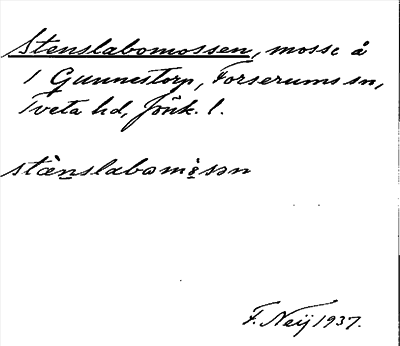 Stenslabomossen, mosse å
1 Gunnestorp, Forserums sn,
Tveta hd, Jönk. l.
stànslabomòsən
F. Neij 1937.